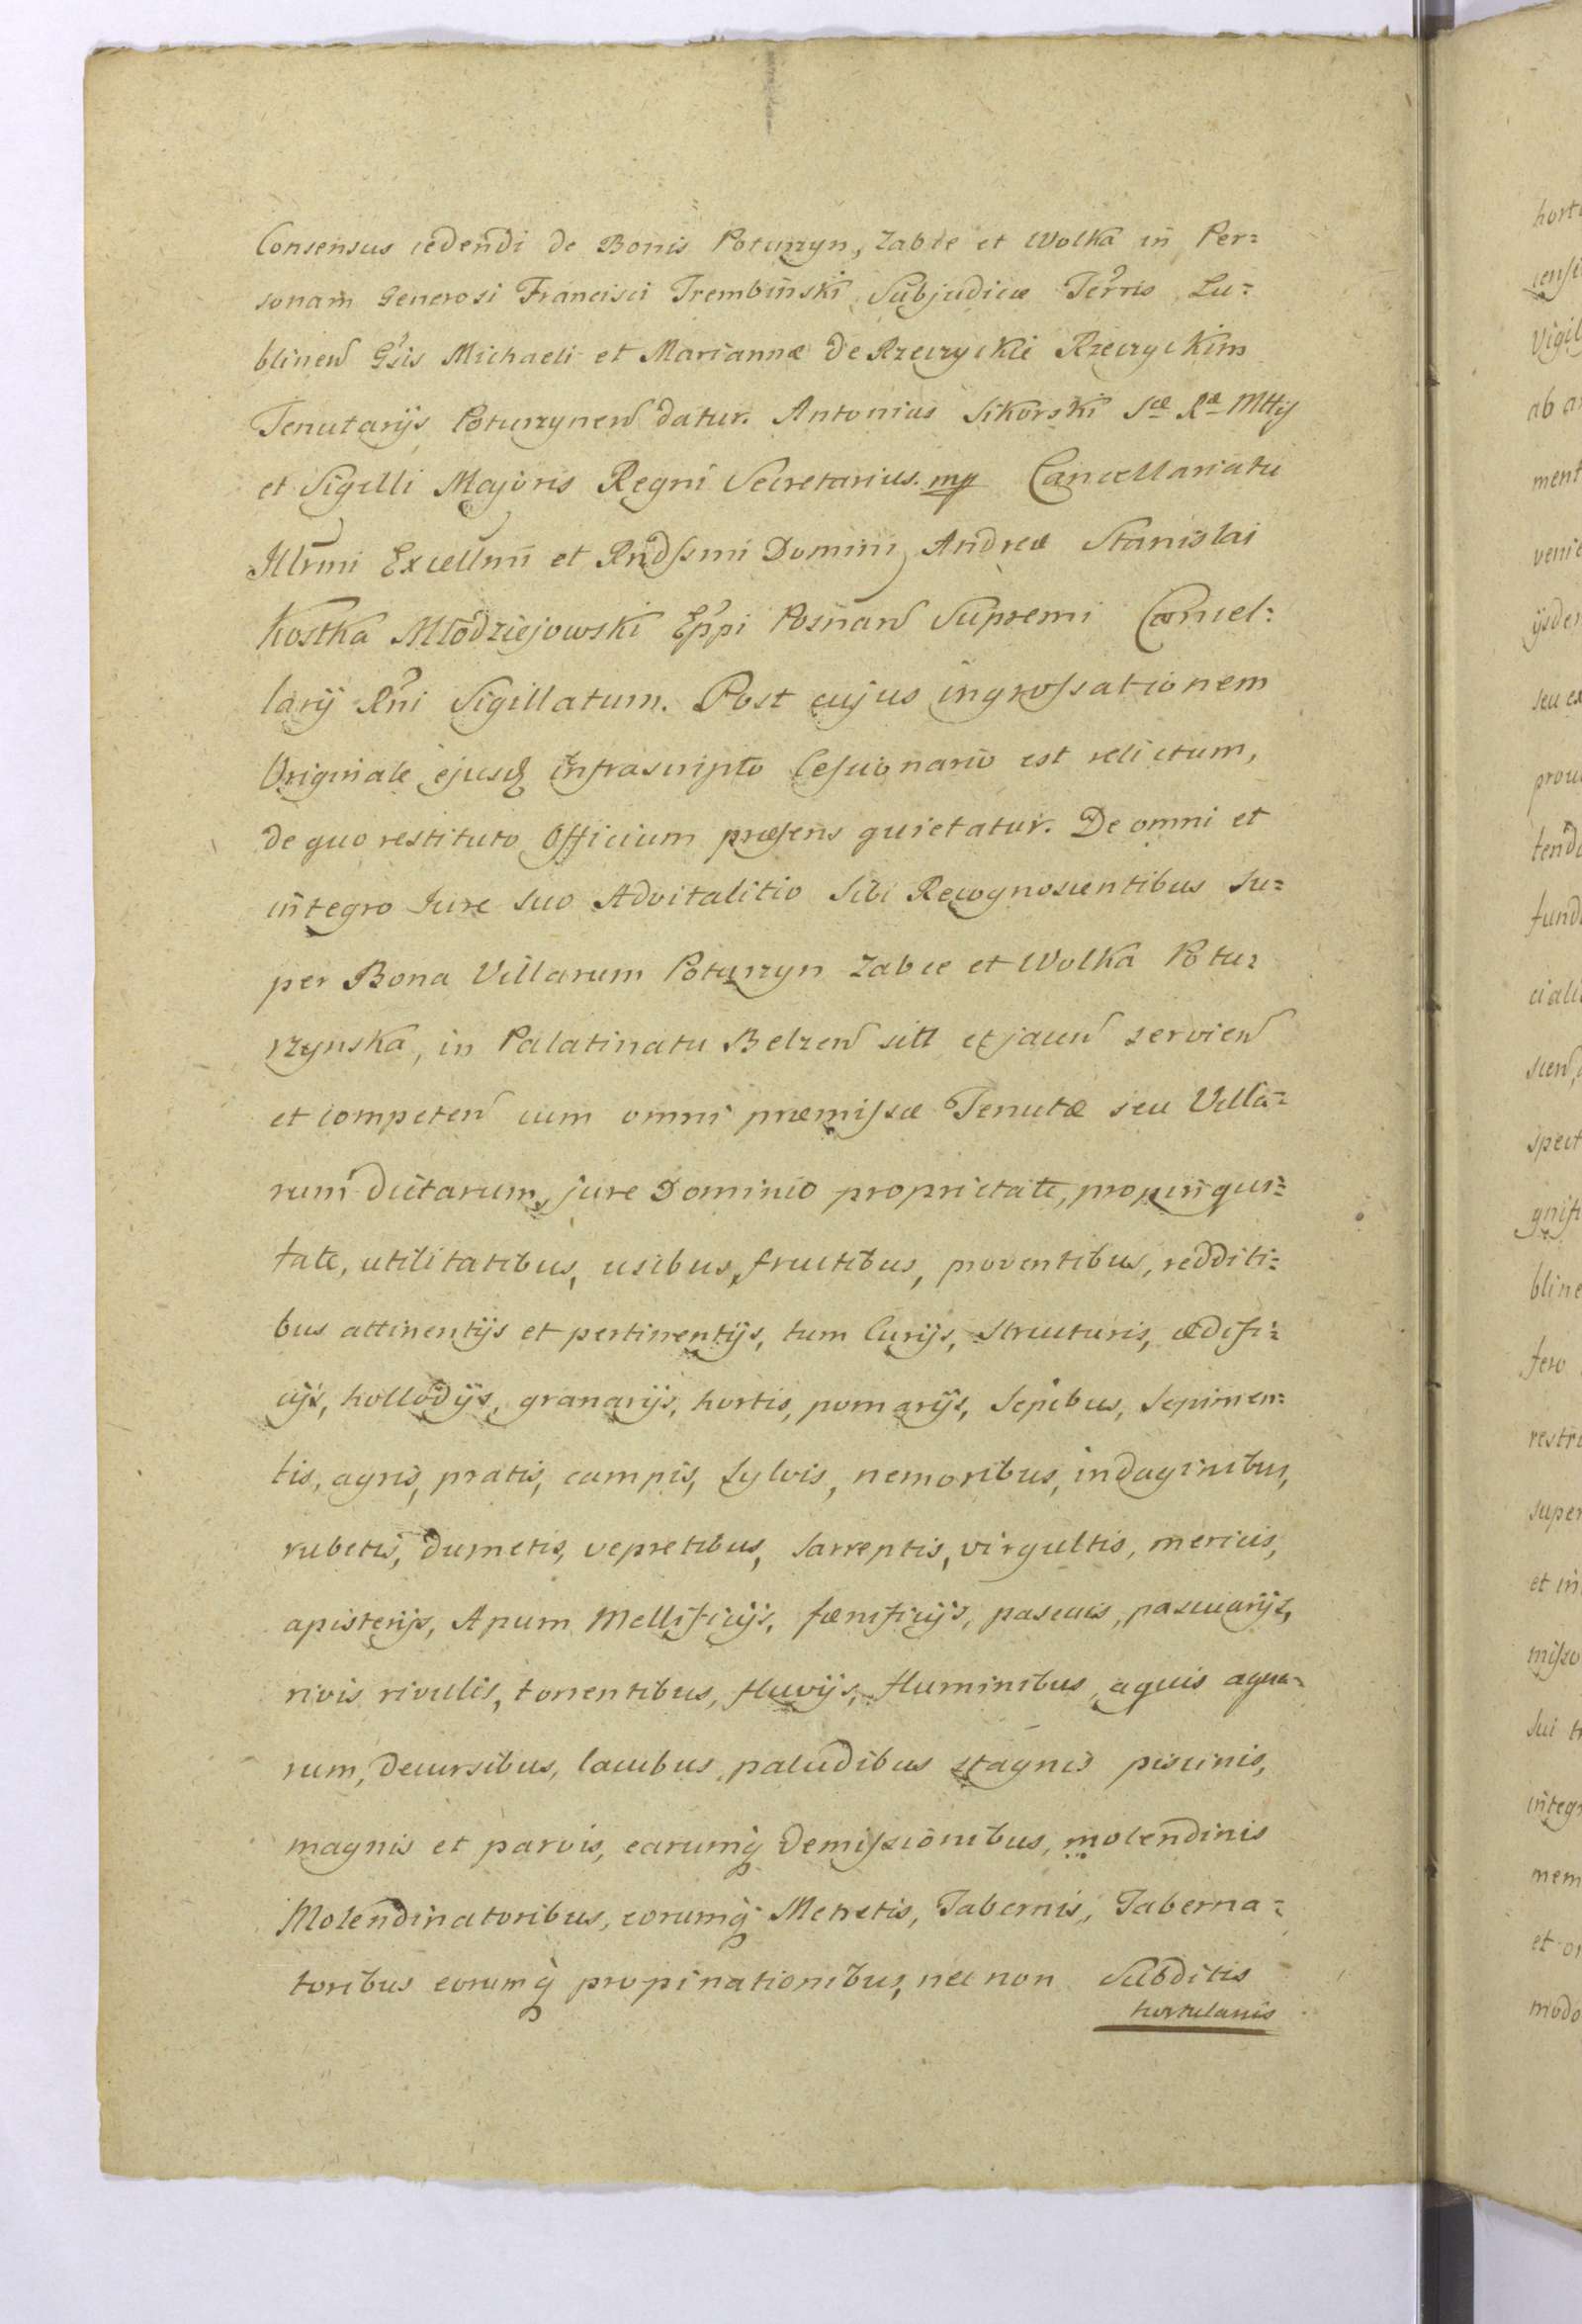 Consensus cedendi de Bonis Poturzyn, Zabcze et Wolka in Per=
sonam Generosi Francisci Trembinski Subjudicæ Terris Lu=
blinen Gsis Michaeli et Mariannæ de Rzeczyckie Rzeczyckim
Tenutarijs Poturzynen datur. Antonius Sikorski Sæ Ræ Mttis
et Sigilli Majoris Regni Secretarius. mp Cancellariatu
Illrmi Excellmi et Rndssmi Domini Andreæ Stanislai
Kostka Młodziejowski Eppi Posnan Supremi Cancel:
larij Rni Sigillatum. Post cujus ingrossationem
Originale ejusd infrascripto Cessionario est relictum,
de quo restituto Officium præsens quietatur. De omni et
integro Jure suo Advitalitio sibi Recognoscentibus su=
per Bona Villarum Poturzyn Zabcze et Wolka Potu=
rzynska, in Palatinatu Belzen sitt et jacen servien
et competen cum omni præmissæ Tenutæ seu Villa=
rum dictarum, jure Dominio proprietate, propinqui=
tate, utilitatibus, usibus, fructibus, proventibus, redditi=
bus attinentijs et pertinentijs, tum Curijs, structuris, ædifi=
cijs, hollodijs, granarijs, hortis, pomarijs, Sepibus, Sepimen=
tis, agris, pratis, campis, sylvis, nemoribus, indaginibus,
rubetis, dumetis, vepretibus, sarreptis, virgultis, mericis,
apisterijs, Apum Mellificijs, fænificijs, pascuis, pascuarijs,
rivis rivulis, torrentibus, fluvijs, fluminibus, aquis aqua=
rum, decursibus, lacubus, paludibus stagnis piscinis,
magnis et parvis, earumq demissionibus, molendinis
Molendinatoribus, eorumq Metretis, Tabernis, Taberna=
toribus eorumq propinationibus, nec non Subditis
hortulanis